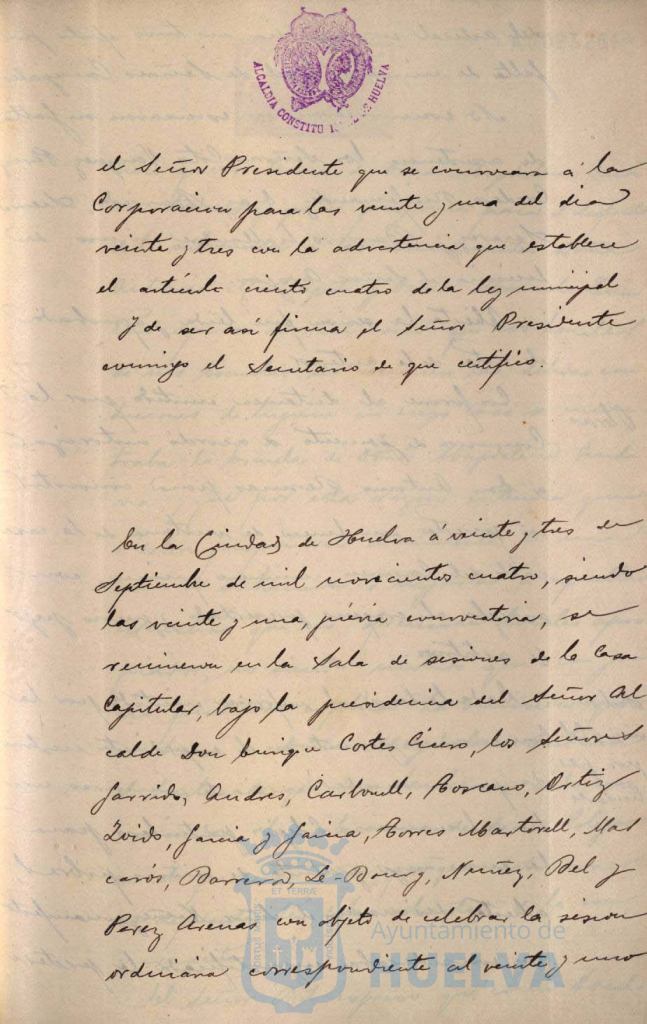 ALCALDIA CONSTITU DE HUELVA
el Señor Presidente que se convocara á la
Corporacion para las veinte y una del dia
veinte y tres con la advertencia que establece
el artículo ciento cuatro de la ley municipal
Y de ser así firma el Señor Presidente
conmigo el Secretario de que certifico.
En la Ciudad de Huelva á veinte y tres de
Septiembre de mil novecientos cuatro, siendo
las veinte y una, prévia convocatoria, se
reunieron en la Sala de sesiones de la Casa
Capitular, bajo la presidencia del Señor Al
calde Don Enrique Cortes Cicero, los Señores
Garrido, Andres, Carbonell, Toscano, Ortiz
Garcia y Torres Martorell, Mas
carós, Barrera, Le-Bourg, Nuñez, Bel y
Perez Arenas con objeto de celebrar la sesion
ordinaria correspondiente al veinte y uno
ET TERRÆ
Ayuntamiento de
HUELVA